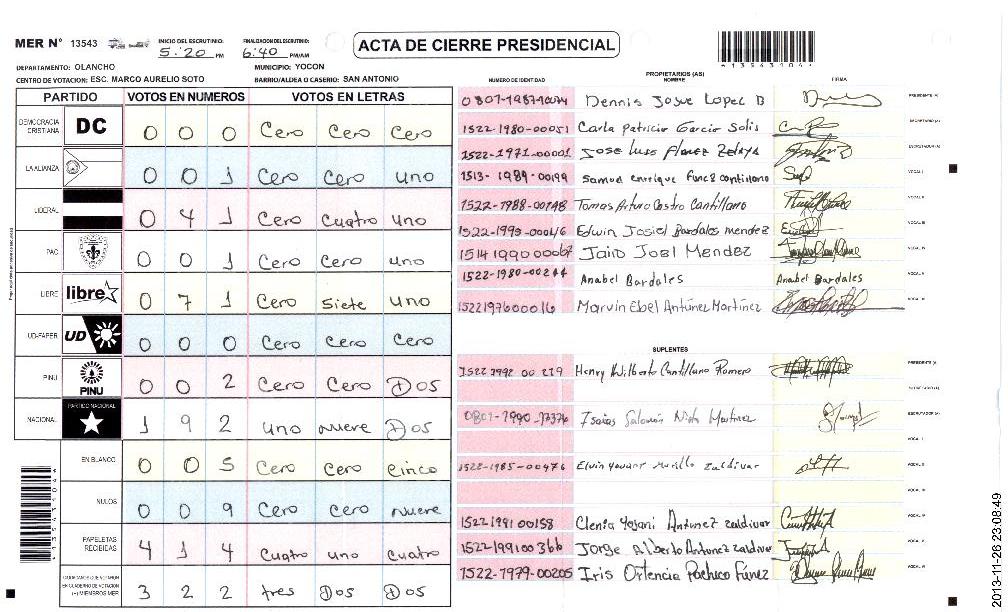 MER N° 13543
INICIO DEL ESCRUTINIO: 5:20 PM
FINALIZACION DEL ESCRUTINIO: 6:40 PM/AM
ACTA DE CIERRE PRESIDENCIAL
*13543104*
DEPARTAMENTO: OLANCHO
MUNICIPIO: YOCON
CENTRO DE VOTACION: ESC. MARCO AURELIO SOTO
BARRIO/ALDEA O CASERIO: SAN ANTONIO
PARTIDO VOTOS EN NUMEROS VOTOS EN LETRAS
DEMOCRACIA CRISTIANA DC 0 0 0 Cero Cero Cero
LA ALIANZA 0 0 1 Cero Cero uno
LIBERAL 0 4 1 Cero Cuatro uno
PAC 0 0 1 Cero Cero uno
LIBRE libre 0 7 1 Cero Siete uno
UD-FAPER UD 0 0 0 Cero Cero Cero
PINU PINU 0 0 2 Cero Cero Dos
NACIONAL PARTIDO NACIONAL 1 9 2 uno nueve Dos
EN BLANCO 0 0 5 Cero Cero Cinco
NULOS 0 0 9 Cero Cero nueve
PAPELETAS RECIBIDAS 4 1 4 Cuatro uno Cuatro
CIUDADANOS QUE VOTARON EN CUADERNO DE VOTACION (+) MIEMBROS MER 3 2 2 tres Dos Dos
PROPIETARIOS (AS)
NUMERO DE IDENTIDAD NOMBRE FIRMA
Dennis Josue Lopez B PRESIDENTE (A)
1522-1980-00051 Carla Patricia Garcia Solis SECRETARIO (A)
1522-1971-00001 Jose Luis Zelaya ESCRUTADOR (A)
1513-1989-00199 Samuel enrique VOCAL I
1522-1988-00148 Tomas Arturo Castro Cantillano VOCAL II
Edwin Josiel Bardales mendez VOCAL III
Jairo Joel Mendez VOCAL IV
1522-1980-00244 Anabel Bardales Anabel Bardales VOCAL V
1522197600016 Marvin Ebel Antúnez Martínez VOCAL VI
SUPLENTES
Henry Wilberto Cantillano Romero PRESIDENTE (A)
SECRETARIO (A)
Isaias Salomón Nieto Martinez ESCRUTADOR (A)
VOCAL I
1522-1985-00476 Elvin Murillo Zaldivar VOCAL II
VOCAL III
1522199100158 Clenia Yojani Antunez zaldivar VOCAL IV
1522199100366 Jorge Alberto Antunez zaldivar VOCAL V
1522-1979-00205 Iris Ortencia Pacheco Fúnez VOCAL VI
*13543104*
2013-11-26 23:08:49